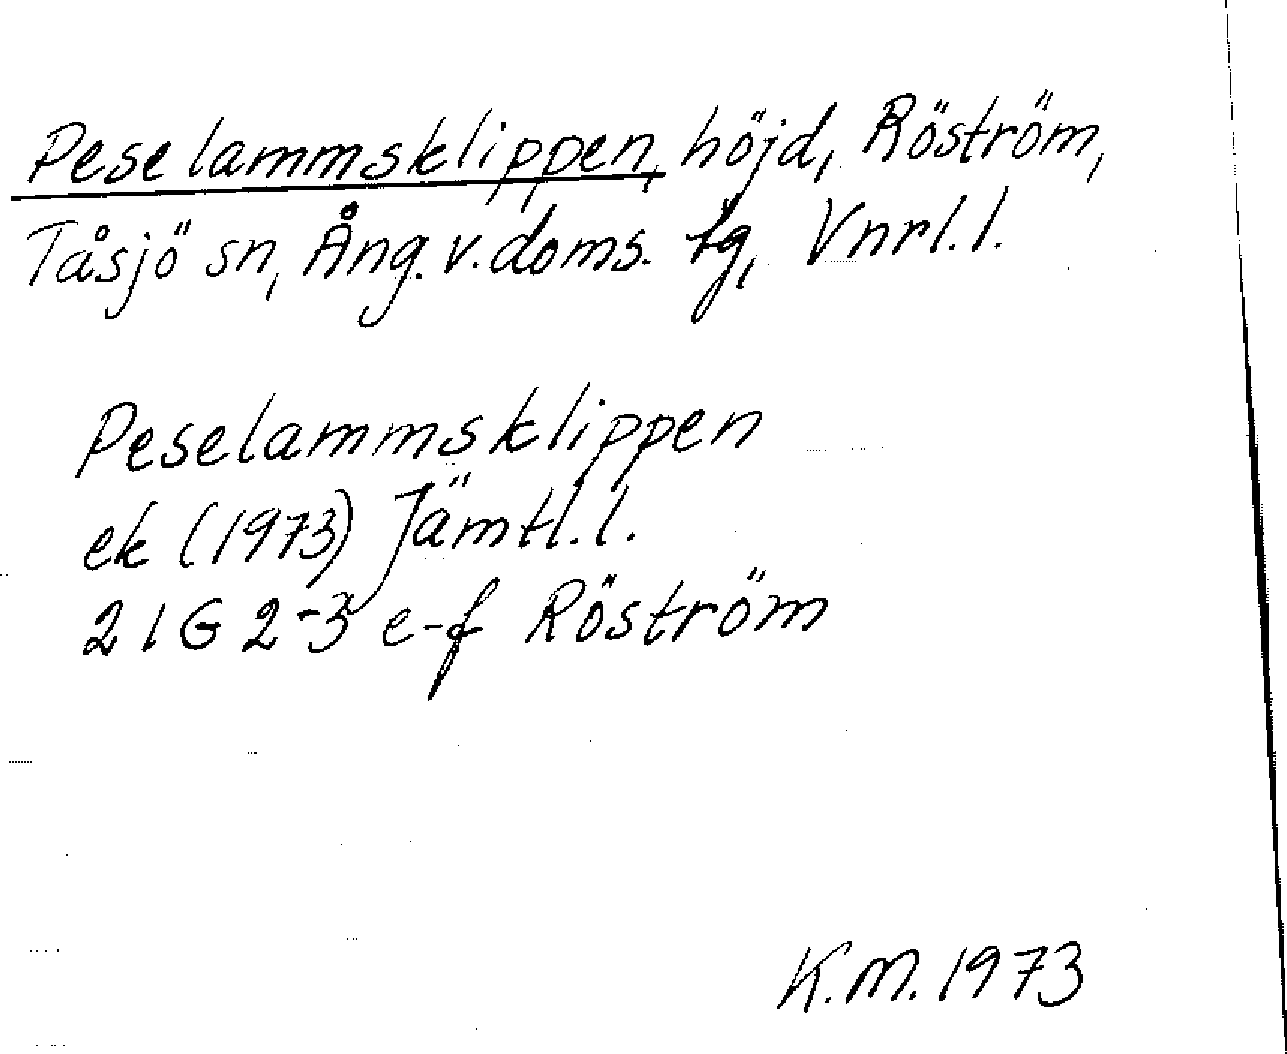 Peselammsklippen, höjd, Röström,
Tåsjö sn, Ång. v. doms. tg, Vnrl. l.
Peselammsklippen
ek (1973) Jämtl. l.
21G 2-3 e-f Röström
K.M. 1973